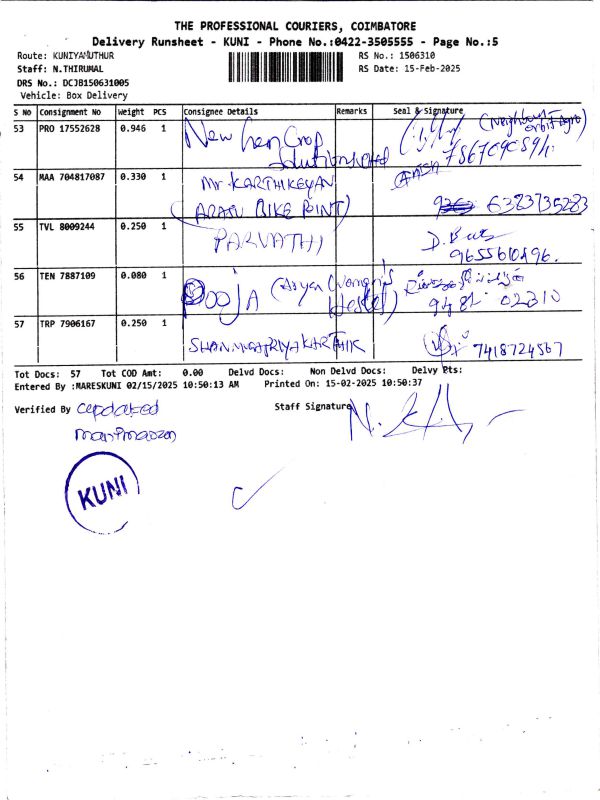 THE PROFESSIONAL COURIERS, COIMBATORE
Delivery Runsheet - KUNI - Phone No.:0422-3505555 - Page No.:5
Route: KUNIYAMUTHUR
RS No.: 1506310
Staff: N.THIRUMAL
RS Date: 15-Feb-2025
DRS No.: DCJB150631005
Vehicle: Box Delivery
S No Consignment No Weight PCS Consignee Details Remarks Seal & Signature
53 PRO 17552628 0.946 1 New Gen Crop (Neighbour
54 MAA 704817087 0.330 1 Mr. KARTHIKEYAN
(ARASU BIKE POINT) 6383735283
55 TVL 8009244 0.250 1 PARVATHI
9655610496.
56 TEN 7887109 0.080 1 POOJA (Women's
Hostel) 02310
57 TRP 7906167 0.250 1 7418724567
Tot Docs: 57 Tot COD Amt: 0.00 Delvd Docs: Non Delvd Docs: Delvy Pts:
Entered By :MARESKUNI 02/15/2025 10:50:13 AM Printed On: 15-02-2025 10:50:37
Verified By updated Staff Signature
KUNI